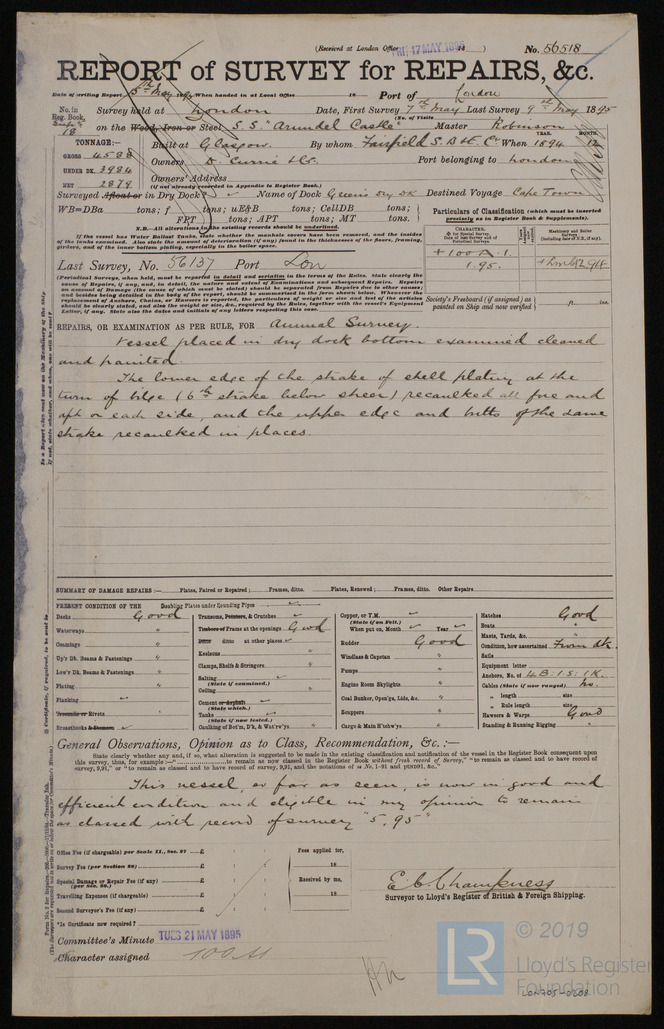 (Received at London Office FRI. 17 MAY 1895 18 ) No. 56518
REPORT of SURVEY for REPAIRS, &c.
Date of writing Report 15th May 1895 When handed in at Local Office 18 Port of London
No. in Reg. Book. Survey held at London Date, First Survey 7th May Last Survey 9th May 1895
(No. of Visits
18 on the Wood, Iron or Steel S.S. "Arundel Castle" Master Robinson
TONNAGE:— Built at Glasgow. By whom Fairfield S.B. & E. Co. When 1894 YEAR. MONTH. 12
GROSS 4588 Owners D. Currie & Co. Port belonging to London
UNDER DK. 3984 Owners' Address
NET 2879 (if not already recorded in Appendix to Register Book.)
Surveyed Afloat or in Dry Dock? ✓ Name of Dock Green's Dry Dk Destined Voyage Cape Town
WB=DBa tons; f tons; uE&B tons; CellDB tons;
FPT tons; APT tons; MT tons.
Particulars of Classification (which must be inserted precisely as in Register Book & Supplements).
N.B.—All alterations in the existing records should be underlined.
If the vessel has Water Ballast Tanks, state whether the manhole covers have been removed, and the insides of the tanks examined. Also state the amount of deterioration (if any) found in the thicknesses of the floors, framing, girders, and of the inner bottom plating, especially in the boiler space.
CHARACTER.
+100A.1.
1.95.
+LMC 12,94
Last Survey, No. 56137 Port Lon
(Periodical Surveys, when held, must be reported in detail and seriatim in the terms of the Rules. State clearly the cause of Repairs, if any, and, in detail, the nature and extent of Examinations and subsequent Repairs. Repairs on account of Damage (the cause of which must be stated) should be separated from Repairs due to other causes; and besides being detailed in the body of the report, should be summarised in the form shewn below. Whenever the replacement of Anchors, Chains, or Hawsers is reported, the particulars of weight or size and test of the articles should be clearly stated, and also the weight or size, &c., required by the Rules, together with the vessel's Equipment Letter, if any. State also the dates and initials of any letters respecting this case.
Society's Freeboard (if assigned) as painted on Ship and now verified ft. ins.
REPAIRS, OR EXAMINATION AS PER RULE, FOR Annual Survey.
Vessel placed in dry dock bottom examined cleaned
and painted.
The lower edge of the strake of shell plating at the
turn of bilge (6th strake below sheer) recaulked all fore and
aft on each side, and the upper edge and butts of the same
strake recaulked in places.
SUMMARY OF DAMAGE REPAIRS :— Plates, Paired or Repaired ; Frames, ditto. Plates, Renewed ; Frames, ditto. Other Repairs
PRESENT CONDITION OF THE Doubling Plates under Sounding Pipes ✓
Decks Good
Waterways "
Coamings "
Up'r Dk. Beams & Fastenings "
Low'r Dk. Beams & Fastenings "
Plating "
Planking ✓
Treenails or Rivets "
Breasthooks & Stemson ✓
Transoms, Pointers, & Crutches ✓
Timbers or Frame at the openings Good
Ditto ditto at other places ✓
Keelsons "
Clamps, Shelfs & Stringers "
Salting ✓
(State if examined.)
Ceiling "
Cement or Asphalt ✓
(State which.)
Tanks ✓
(State if now tested.)
Caulking of Bot'm, D'k, & Wat'rw'ys "
Copper, or Y.M. ✓
(State if on Felt.)
When put on, Month ✓ Year ✓
Rudder Good
Windlass & Capstan "
Pumps "
Engine Room Skylights "
Coal Bunker, Open'gs, Lids, &c. "
Scuppers "
Cargo & Main H'tchw'ys "
Hatches Good
Boats "
Masts, Yards, &c. "
Condition, how ascertained From Dk.
Sails
Equipment letter
Anchors, No. of 4B: 1S: 1K.
Cables (State if now ranged) No.
" length size
" Rule length size
Hawsers & Warps Good
Standing & Running Rigging "
General Observations, Opinion as to Class, Recommendation, &c. :—
State clearly whether any and, if so, what alteration is suggested to be made in the existing classification and notification of the vessel in the Register Book consequent upon this survey, thus, for example :—" to remain as now classed in the Register Book without fresh record of Survey," "to remain as classed and to have record of survey, 9,91," or "to remain as classed and to have record of survey, 9,91, and the notations of ss No. 1-91 and ptND91, &c."
This vessel, so far as seen, is now in good and
efficient condition and eligible in my opinion to remain
as classed with record of survey "5,95"
Office Fee (if chargeable) per Scale II., Sec. 27 £
Survey Fee (per Section 28) £
Special Damage or Repair Fee (if any) (per Sec. 28.) £
Travelling Expenses (if chargeable) £
Second Surveyor's Fee (if any) £
*Is Certificate now required?
Fees applied for, 18
Received by me, 18
E.C. Champness
Surveyor to Lloyd's Register of British & Foreign Shipping.
Committee's Minute TUES 21 MAY 1895
Character assigned 100A1
© 2019
LR
Lloyd's Register
Foundation
LON705-0208